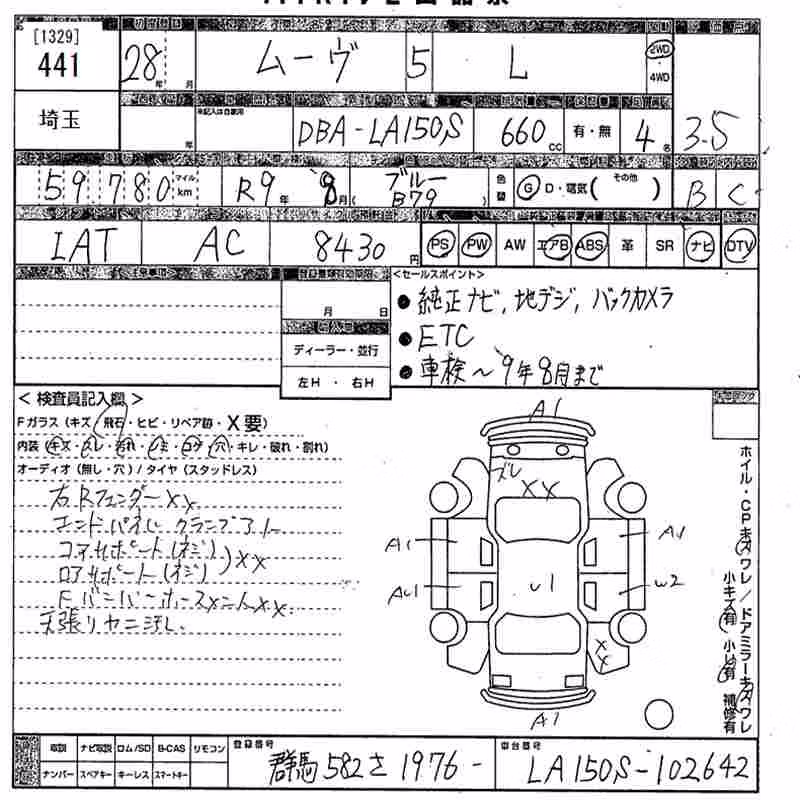 [1329]
441
28 年 月
ムーヴ
5
L
2WD
4WD
埼玉
年
DBA-LA150S
660 cc
有・無
4 名
3.5
59,780 マイル km
R9年 8月
ブルー
B79
色替
G D・電気( その他 )
B
C
IAT
AC
8430 円
PS PW AW エアB ABS 革 SR ナビ DTV
月 日
ディーラー・並行
左H ・ 右H
<セールスポイント>
● 純正ナビ, 地デジ, バックカメラ
● ETC
● 車検~9年8月まで
<検査員記入欄>
Fガラス(キズ・飛石・ヒビ・リペア跡・X要)
内装(キズ・スレ・汚れ・シミ・コゲ・穴・キレ・破れ・割れ)
オーディオ(無し・穴)/タイヤ(スタッドレス)
右RフェンダーXX
エンドパネル クランプアト
コアサポート(ネジ)
ロアサポート(ネジ) )XX
天張りヤニ汚レ
A1
ズレ
XX
A1
A1
AU1
U1
W2
XX
A1
ホイル・CPキズワレ/ドアミラーキズワレ
小キズ有 小凹有 補修有
取説 ナビ取説 ロム/SD B-CAS リモコン
ナンバー スペアキー キーレス スマートキー
登録番号
群馬 582 さ 1976 -
車台番号
LA150S-102642